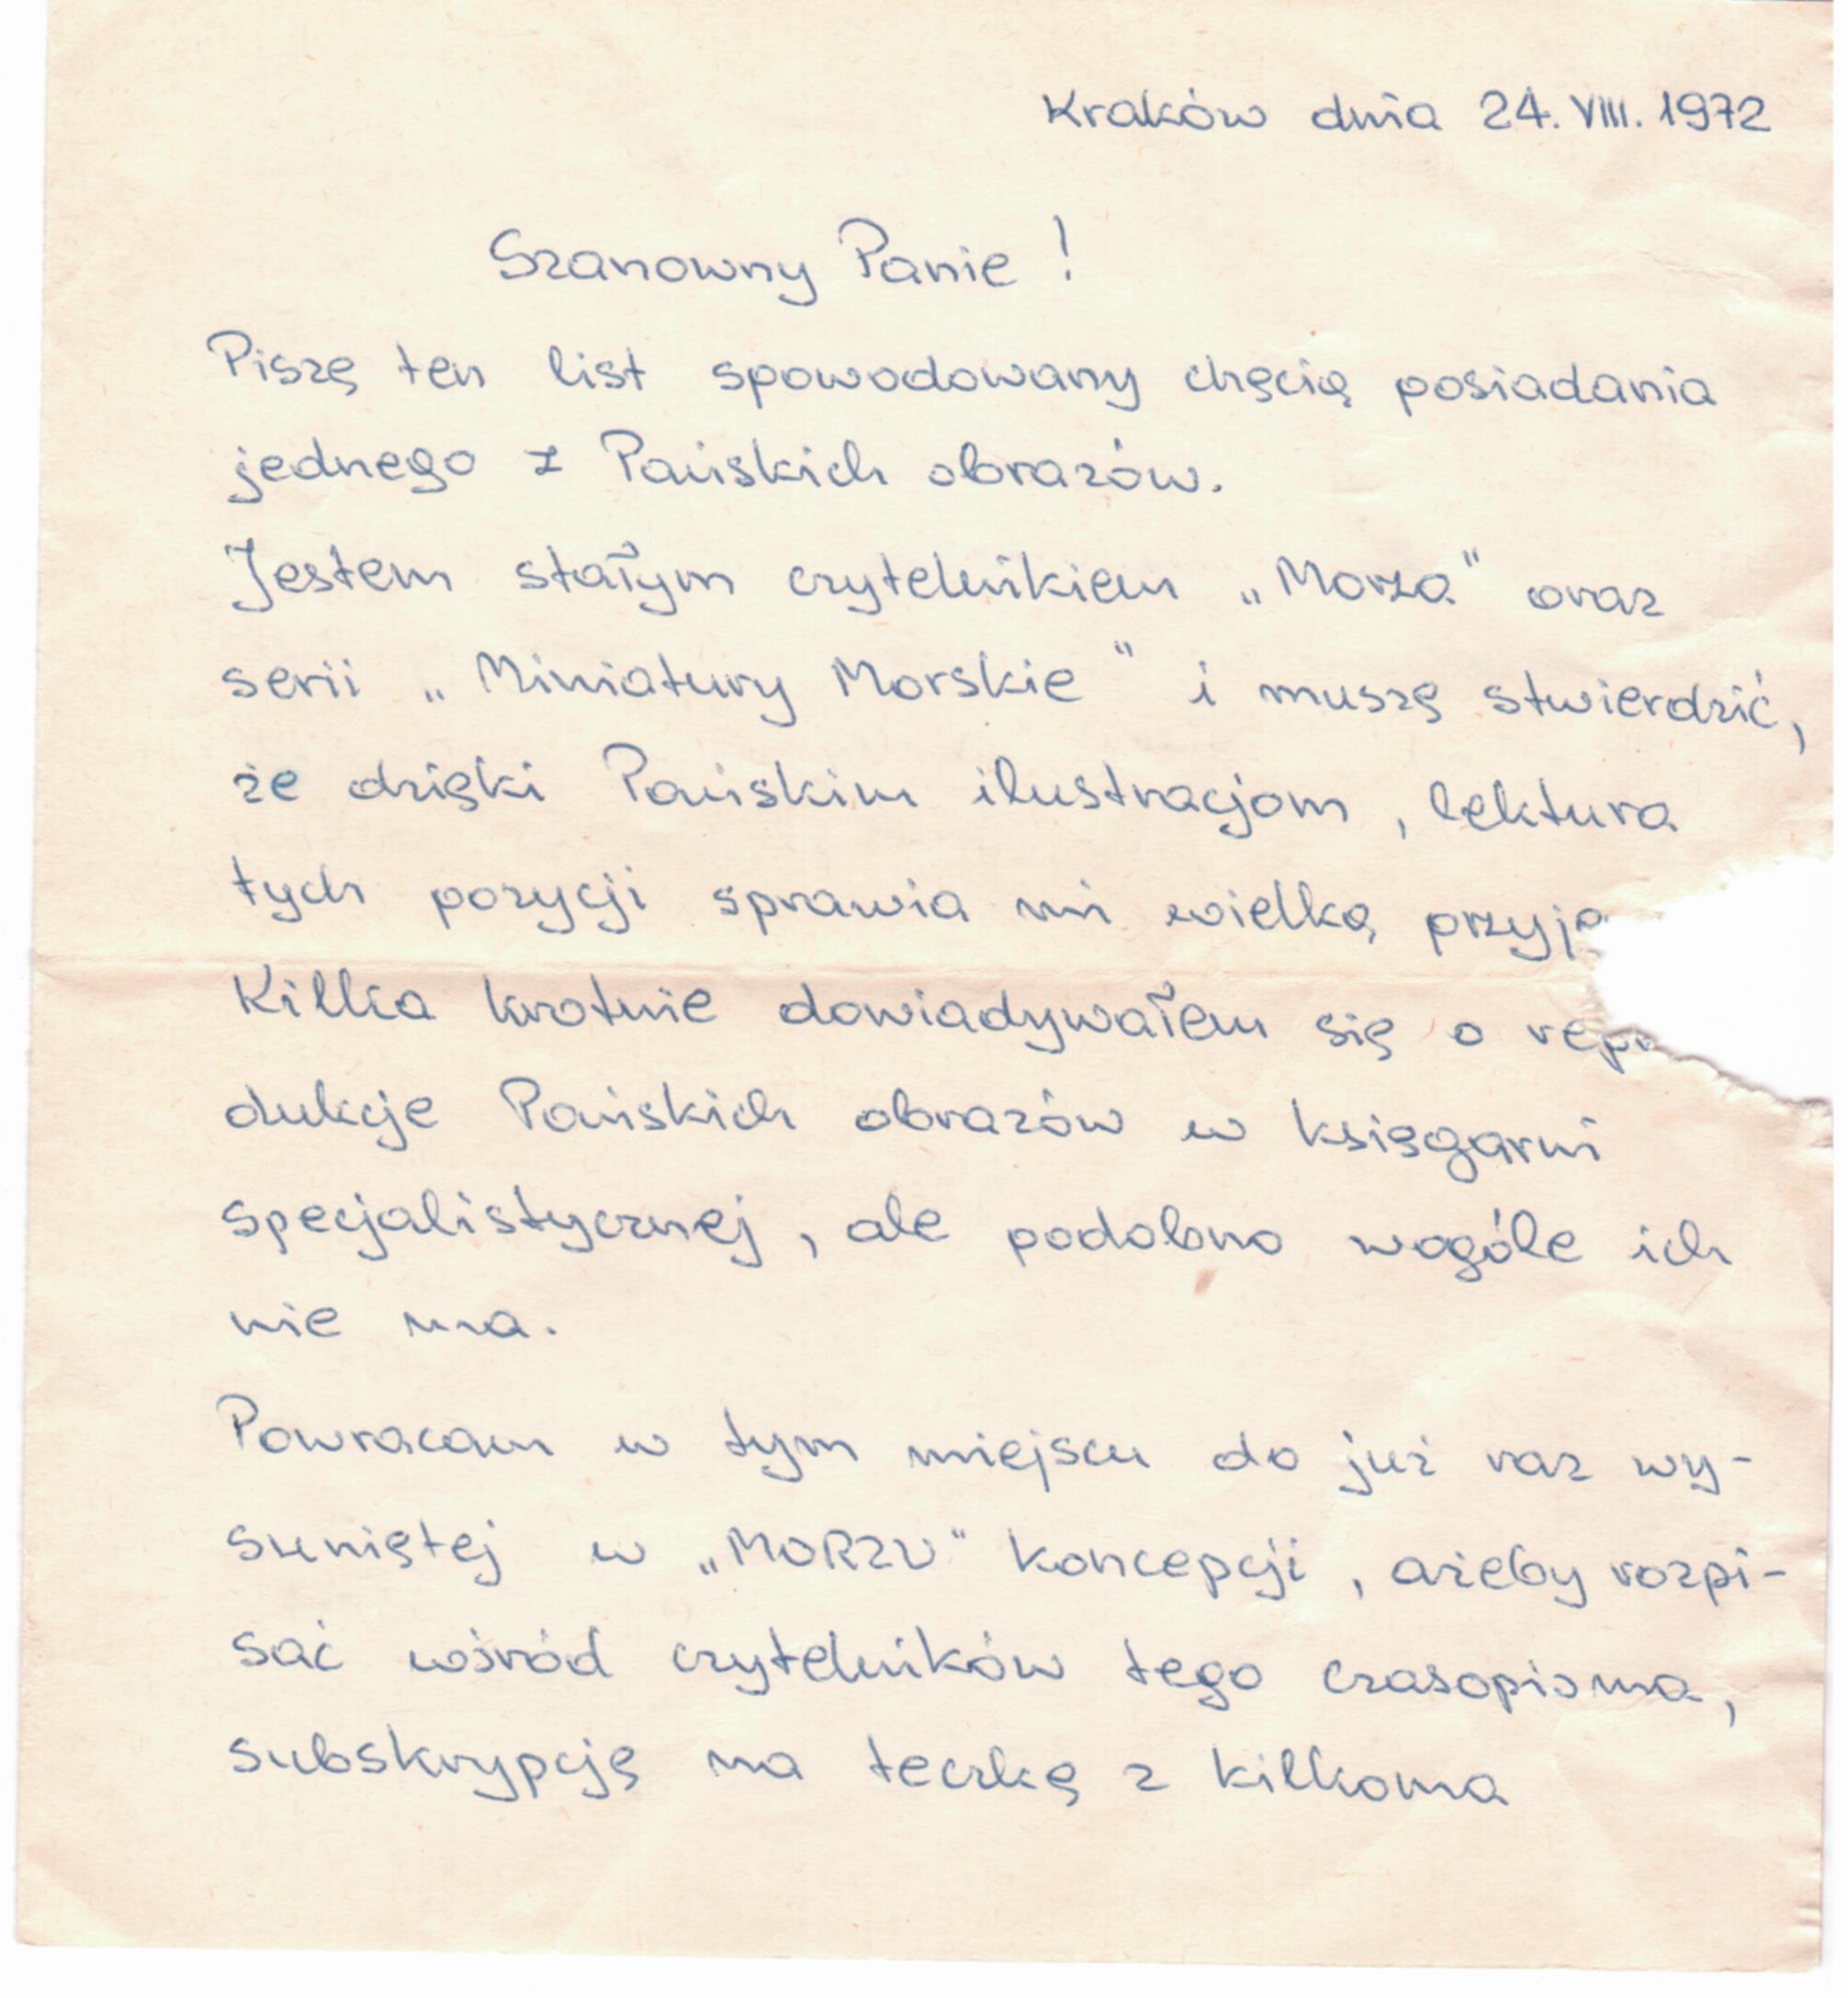 Kraków dnia 24. VIII. 1972
Szanowny Panie !
Piszę ten list spowodowany chęcią posiadania
jednego z Pańskich obrazów.
Jestem stałym czytelnikiem „Morza" oraz
serii „Miniatury Morskie" i muszę stwierdzić,
że dzięki Pańskim ilustracjom, lektura
tych pozycji sprawia mi wielką
Kilka krotnie dowiadywałem się o
dukcje Pańskich obrazów w księgarni
specjalistycznej, ale podobno wogóle ich
nie ma.
Powracam w tym miejscu do już raz wy-
suniętej w „MORZU" koncepcji, ażeby rozpi-
sać wśród czytelników tego czasopisma,
subskrypcję na teczkę z kilkoma